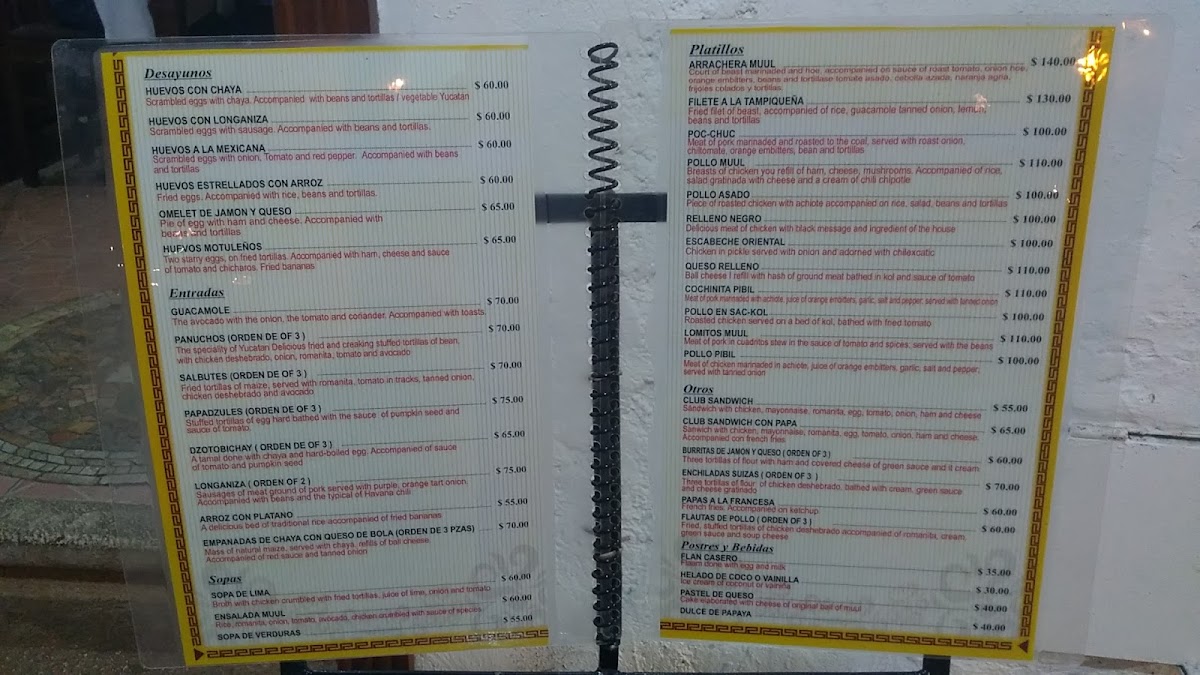 Desayunos
HUEVOS CON CHAYA $ 60.00
Scrambled eggs with chaya. Accompanied with beans and tortillas / vegetable Yucatan
HUEVOS CON LONGANIZA $ 60.00
Scrambled eggs with sausage. Accompanied with beans and tortillas.
HUEVOS A LA MEXICANA $ 60.00
Scrambled eggs with onion, Tomato and red pepper. Accompanied with beans
and tortillas
HUEVOS ESTRELLADOS CON ARROZ $ 60.00
Fried eggs. Accompanied with rice, beans and tortillas.
OMELET DE JAMON Y QUESO $ 65.00
Pie of egg with ham and cheese. Accompanied with
beans and tortillas
HUEVOS MOTULEÑOS $ 65.00
Two starry eggs, on fried tortillas. Accompanied with ham, cheese and sauce
of tomato and chicharos. Fried bananas
Entradas
GUACAMOLE $ 70.00
The avocado with the onion, the tomato and coriander. Accompanied with toasts
PANUCHOS (ORDEN DE OF 3 ) $ 70.00
The speciality of Yucatan Delicious fried and creaking stuffed tortillas of bean,
with chicken deshebrado, onion, romanita, tomato and avocado
SALBUTES (ORDEN DE OF 3 ) $ 70.00
Fried tortillas of maize, served with romanita, tomato in tracks, tanned onion,
chicken deshebrado and avocado
PAPADZULES (ORDEN DE OF 3 ) $ 75.00
Stuffed tortillas of egg hard bathed with the sauce of pumpkin seed and
sauce of tomato.
DZOTOBICHAY ( ORDEN DE OF 3 ) $ 65.00
A tamal done with chaya and hard-boiled egg. Accompanied of sauce
of tomato and pumpkin seed
LONGANIZA ( ORDEN OF 2 ) $ 75.00
Sausages of meat ground of pork served with purple, orange tart onion,
Accompanied with beans and the typical of Havana chili
ARROZ CON PLATANO $ 55.00
A delicious bed of traditional rice accompanied of fried bananas
EMPANADAS DE CHAYA CON QUESO DE BOLA (ORDEN DE 3 PZAS) $ 70.00
Mass of natural maize, served with chaya, refills of ball cheese.
Accompanied of red sauce and tanned onion
Sopas
SOPA DE LIMA $ 60.00
Broth with chicken crumbled with fried tortillas, juice of lime, onion and tomato
ENSALADA MUUL $ 60.00
Rice, romanita, onion, tomato, avocado, chicken with sauce of species
SOPA DE VERDURAS $ 55.00
Platillos
ARRACHERA MUUL $ 140.00
Court of beast marinaded and hoe, accompanied on sauce of roast tomato, onion hoe,
orange embitters, beans and tortillase tomate asado, cebolla azada, naranja agria,
frijoles colados y tortillas.
FILETE A LA TAMPIQUEÑA $ 130.00
Fried filet of beast, accompanied of rice, guacamole tanned onion,
beans and tortillas
POC-CHUC $ 100.00
Meat of pork marinaded and roasted to the coal, served with roast onion,
chiltomate, orange embitters, bean and tortillas
POLLO MUUL $ 110.00
Breasts of chicken you refill of ham, cheese, mushrooms. Accompanied of rice,
salad gratinada with cheese and a cream of chili chipotle
POLLO ASADO $ 100.00
Piece of roasted chicken with achiote accompanied on rice, salad, beans and tortillas
RELLENO NEGRO $ 100.00
Delicious meat of chicken with black message and ingredient of the house
ESCABECHE ORIENTAL $ 100.00
Chicken in pickle served with onion and adorned with chilexcatic
QUESO RELLENO $ 110.00
Ball cheese I refill with hash of ground meat bathed in kol and sauce of tomato
COCHINITA PIBIL $ 110.00
Meat of pork marinaded with achiote, juice of orange embitters, garlic, salt and pepper, served with tanned onion
POLLO EN SAC-KOL $ 100.00
Roasted chicken served on a bed of kol, bathed with fried tomato
LOMITOS MUUL $ 110.00
Meat of pork in cuadritos stew in the sauce of tomato and spices, served with the beans
POLLO PIBIL $ 100.00
Meat of chicken marinaded in achiote, juice of orange embitters, garlic, salt and pepper,
served with tanned onion
Otros
CLUB SANDWICH $ 55.00
Sandwich with chicken, mayonnaise, romanita, egg, tomato, onion, ham and cheese
CLUB SANDWICH CON PAPA $ 65.00
Sanwich with chicken, mayonnaise, romanita, egg, tomato, onion, ham and cheese.
Accompanied con french fries
BURRITAS DE JAMON Y QUESO ( ORDEN OF 3 ) $ 60.00
Three tortillas of flour with ham and covered cheese of green sauce and it cream
ENCHILADAS SUIZAS ( ORDEN OF 3 ) $ 70.00
Three tortillas of flour of chicken deshebrado, bathed with cream, green sauce
and cheese gratinado
PAPAS A LA FRANCESA $ 60.00
French fries. Accompanied on ketchup.
FLAUTAS DE POLLO ( ORDEN OF 3 ) $ 60.00
Fried, stuffed tortillas of chicken deshebrado accompanied of romanita, cream,
green sauce and soup cheese
Postres y Bebidas
FLAN CASERO $ 35.00
done with egg and milk
HELADO DE COCO O VAINILLA $ 30.00
Ice cream of coconut or
PASTEL DE QUESO $ 40.00
Cake elaborated with cheese of original ball of muul
DULCE DE PAPAYA $ 40.00